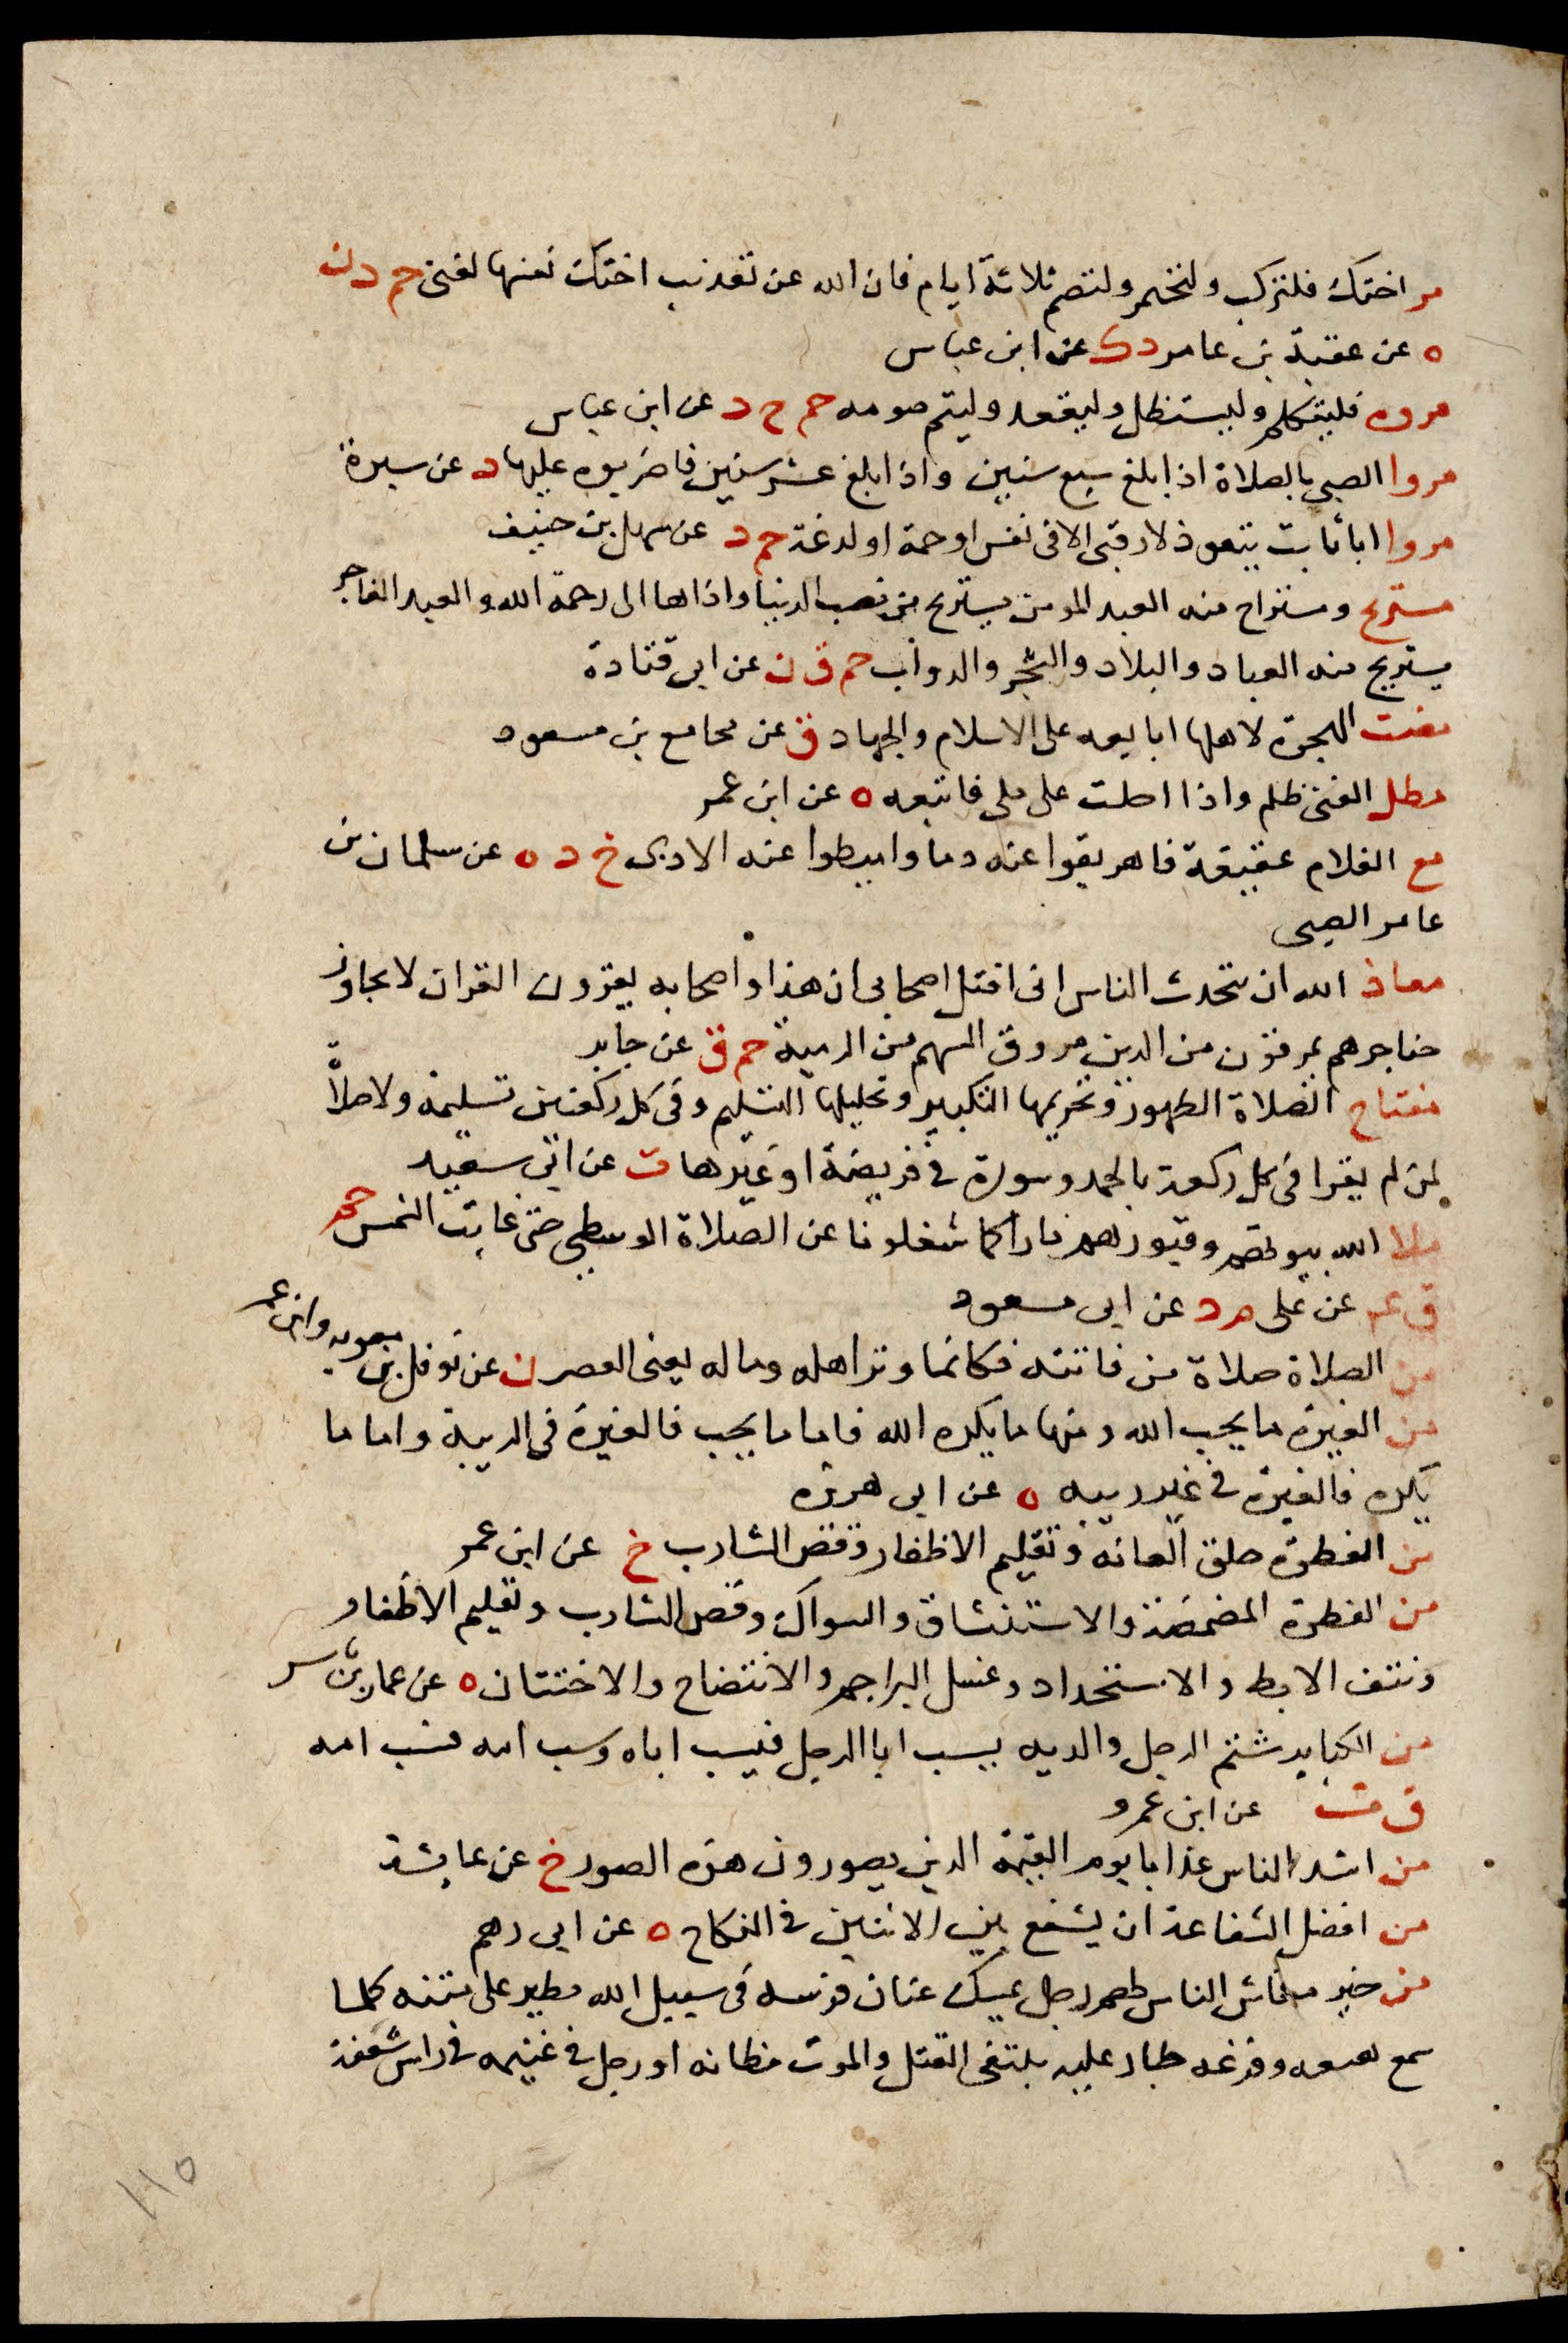 مر اختك فلتركب ولتختمر ولتصم ثلاثة ايام فان الله عن تعذيب اختك نفسها لغنى حم د ن
ه عن عقبة بن عامر د ك عن ابن عباس
مروه فليتكلم وليستظل وليقعد وليتم صومه حم خ د عن ابن عباس
مروا الصبي بالصلاة اذا بلغ سبع سنين واذا بلغ عشر سنين فاضربوه عليها د عن سبرة
مروا ابا ثابت يتعوذ لا رقى الا فى نفس او حمة او لدغة حم د عن سهل بن حنيف
مستريح ومستراح منه العبد المومن يستريح من نصب الدنيا واذاها الى رحمة الله والعبد الفاجر
يستريح منه العباد والبلاد والشجر والدواب حم ق ن عن ابى قتادة
مضت الهجرة لاهلها ابايعه على الاسلام والجهاد ق عن مجاشع بن مسعود
مطل الغنى ظلم واذا احلت على ملى فاتبعه ه عن ابن عمر
مع الغلام عقيقة فاهريقوا عنه دما واميطوا عنه الاذى خ د ه عن سلمان بن
عامر الضبى
معاذ الله ان يتحدث الناس انى اقتل اصحابى ان هذا واصحابه يقرون القران لا يجاوز
حناجرهم يمرقون من الدين مروق السهم من الرمية حم ق عن جابر
مفتاح الصلاة الطهور وتحريمها التكبير وتحليلها التسليم وفى كل ركعتين تسليمة ولا صلاة
لمن لم يقرا فى كل ركعة بالحمد وسورة فى فريضة او غيرها ت عن ابى سعيد
ملا الله بيوتهم وقبورهم نارا كما شغلونا عن الصلاة الوسطى حتى غابت الشمس حم
ق عم عن على م د عن ابى مسعود
من الصلاة صلاة من فاتته فكانما وتر اهله وماله يعنى العصر ن عن نوفل بن معويه وابن عمر
من الغيرة ما يحب الله ومنها ما يكره الله فاما ما يحب فالغيرة فى الريبة واما ما
يكره فالغيرة فى غير ريبه ه عن ابى هريره
من الفطرة حلق العانة وتقليم الاظفار وقص الشارب خ عن ابن عمر
من الفطرة المضمضة والاستنشاق والسواك وقص الشارب وتقليم الاظفار
ونتف الابط والاستحداد وغسل البراجم والانتضاح والاختتان ه عن عمار بن ياسر
من الكباير شتم الرجل والديه يسب ابا الرجل فيسب اباه ويسب امه فيسب امه
ق ت عن ابن عمرو
من اشد الناس عذابا يوم القيمة الذين يصورون هذه الصور خ عن عايشة
من افضل الشفاعة ان يشفع بين الاثنين فى النكاح ه عن ابى رهم
من خير معاش الناس لهم رجل يمسك عنان فرسه فى سبيل الله يطير على متنه كلما
سمع هيعه وفزعه طار عليه يبتغى القتل والموت مظانه او رجل فى غنيمه فى راس شعفة
١١٥